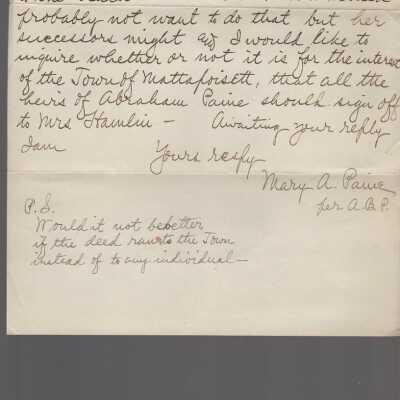 probably not want to do that but her
successors might and I would like to
inquire whether or not it is for the interest
of the Town of Mattapoisett, that all the
heirs of Abraham Paine should sign off
to Mrs. Hamlin — Awaiting your reply
I am
Yours resfy
Mary A. Paine
per A.B.P.
P.S.
Would it not be better
if the deed ran to the Town
instead of to any individual —